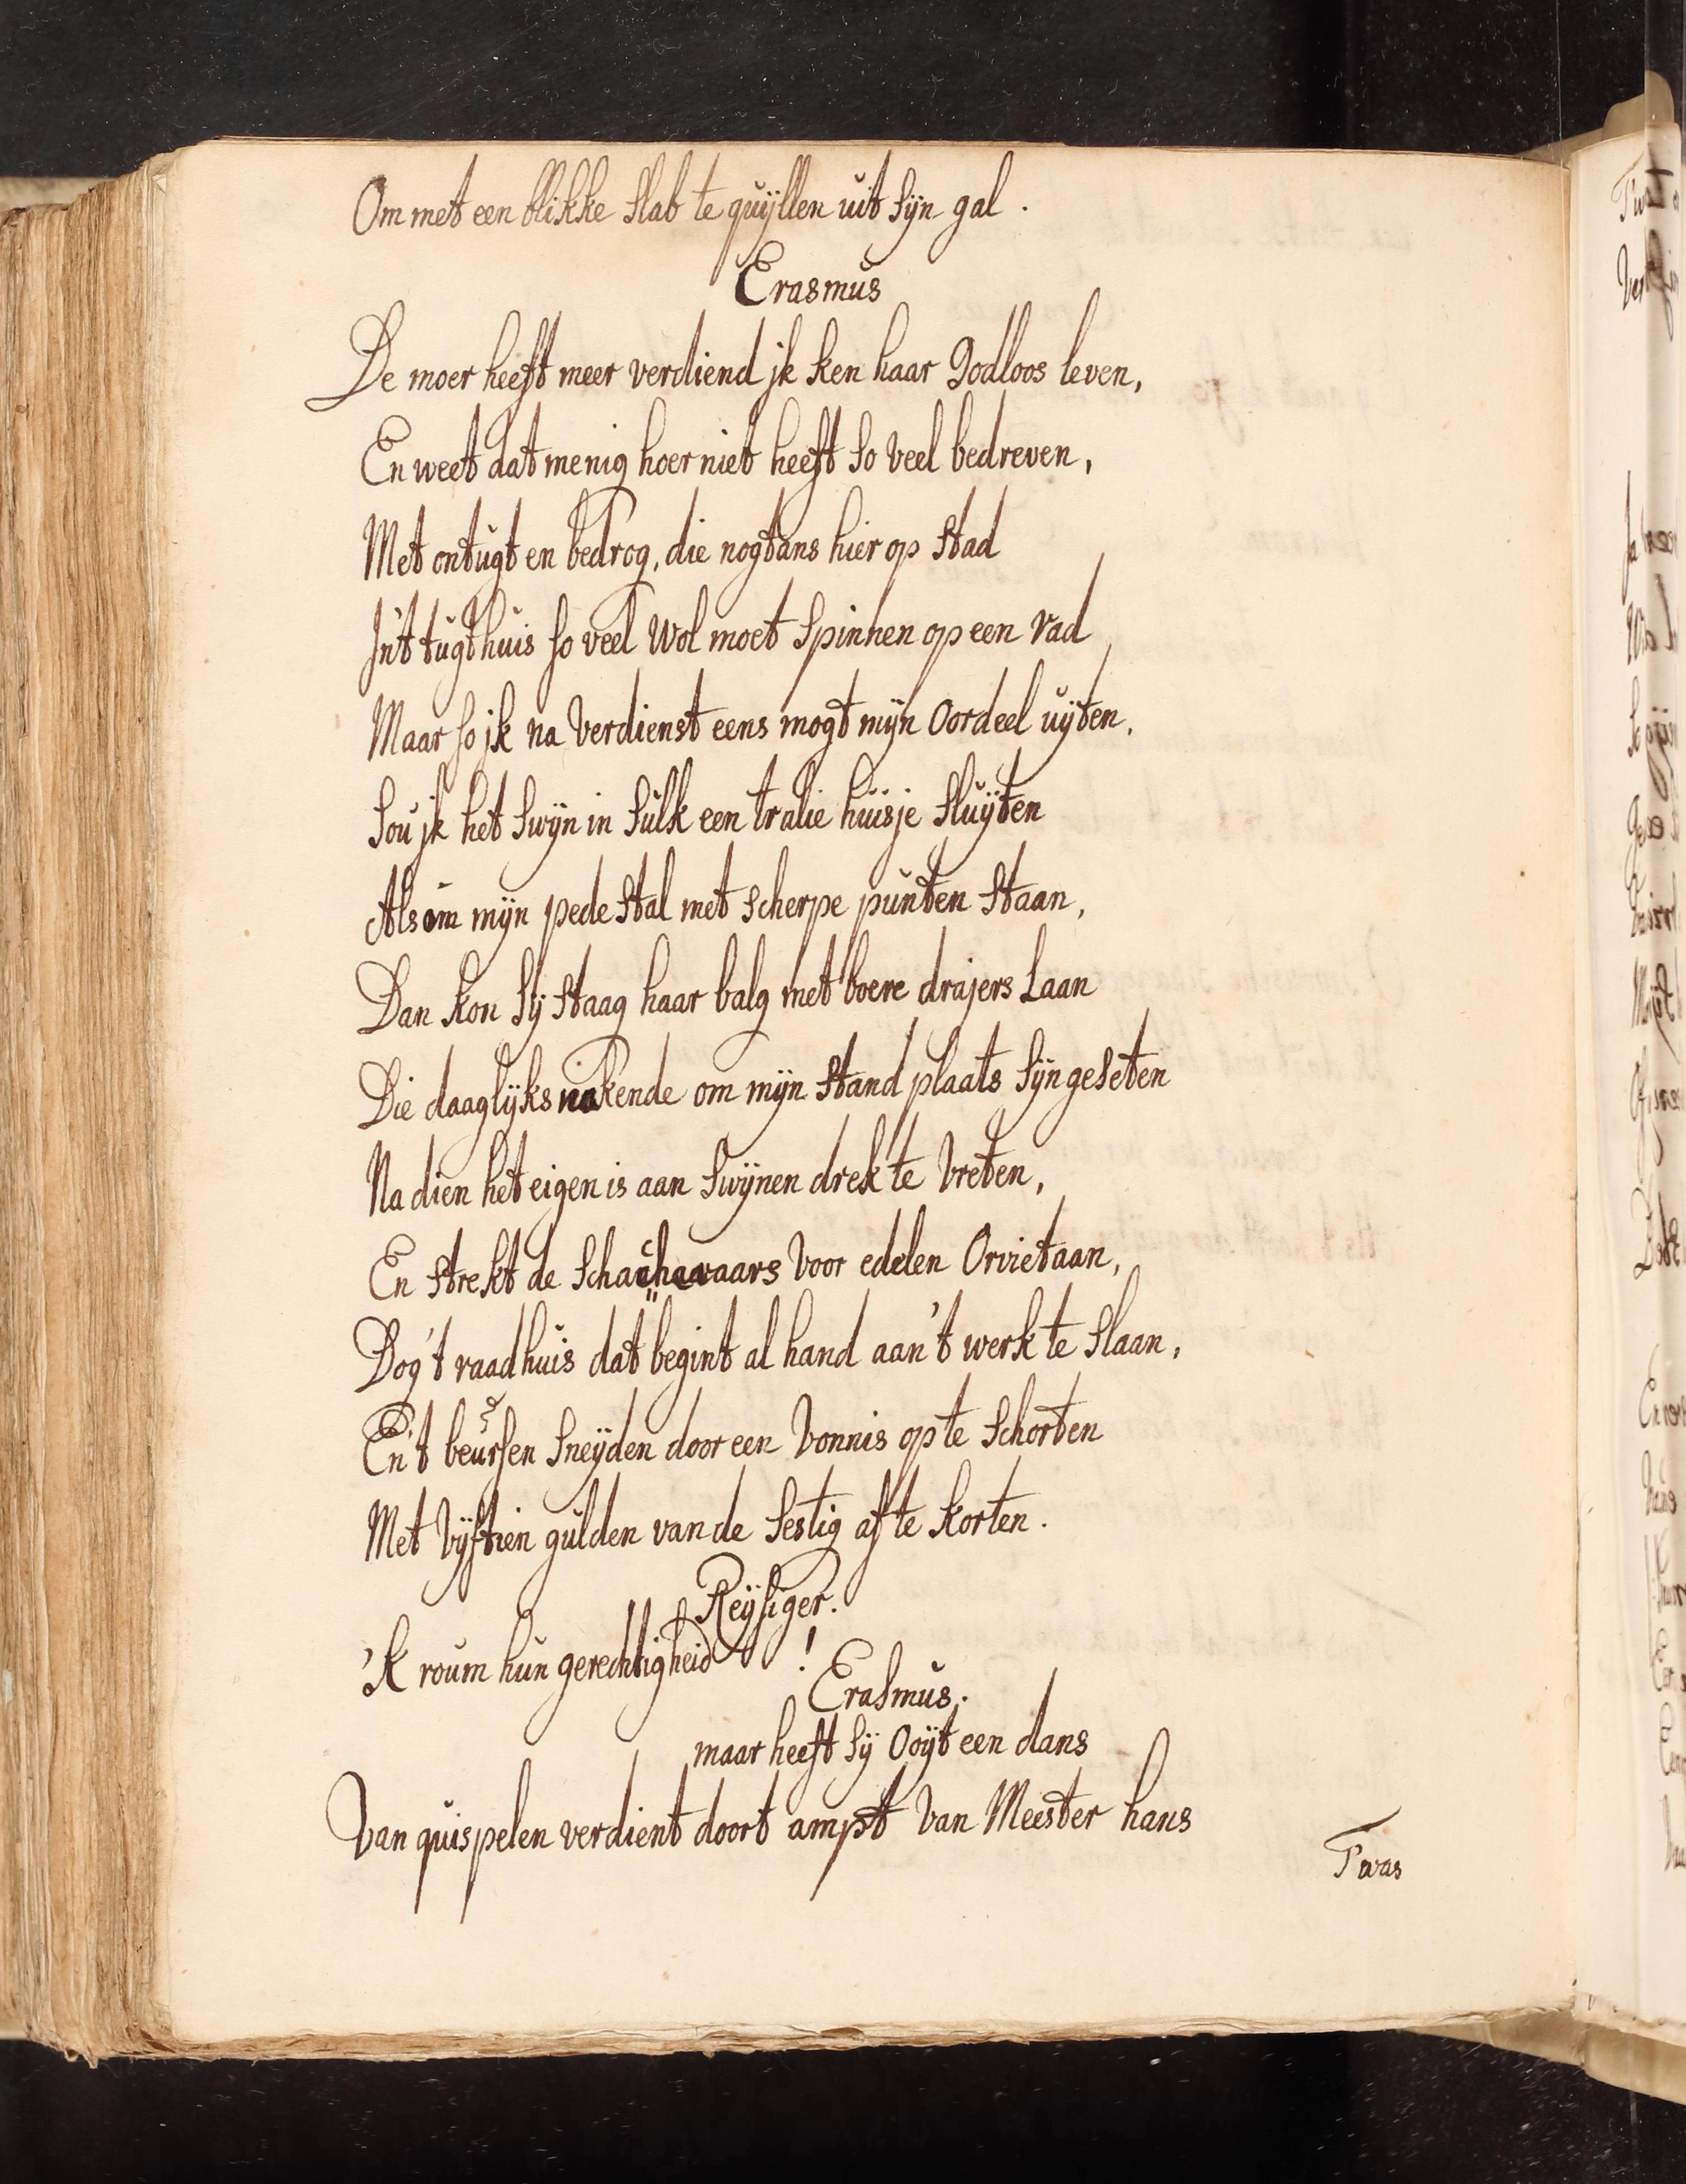 Om met een blikke slab te quyllen uit syn gal.
Erasmus
De moer heeft meer verdiend jk ken haar Godloos leven,
En weet dat menig hoer niet heeft so veel bedreven,
Met ontugt en bedrog, die nogtans hier op stad
In't tugthuis so veel wol moet spinnen op een rad
Maar so jk na verdienst eens mogt mijn oordeel uyten,
Sou jk het swijn in sulk een tralie huisje sluyten
Als om mijn pedestal met scherpe punten staan,
Dan kon sy staag haar balg met boere drajers laan
Die daaglyks nakende om mijn stand plaats sijn geseten
Na dien het eigen is aan swynen drek te vreten,
En strekt de voor edelen Orvietaan,
Dog't raadhuis dat begint al hand aan't werk te slaan,
En't beursen sneyden door een vonnis op te schorten
Met vyftien gulden van de sestig af te korten.
Reysiger.
'K roum hun gerechtigheid !
Erasmus.
maar heeft sy ooyt een dans
Van quispelen verdient doort ampt van Meester hans
T'was